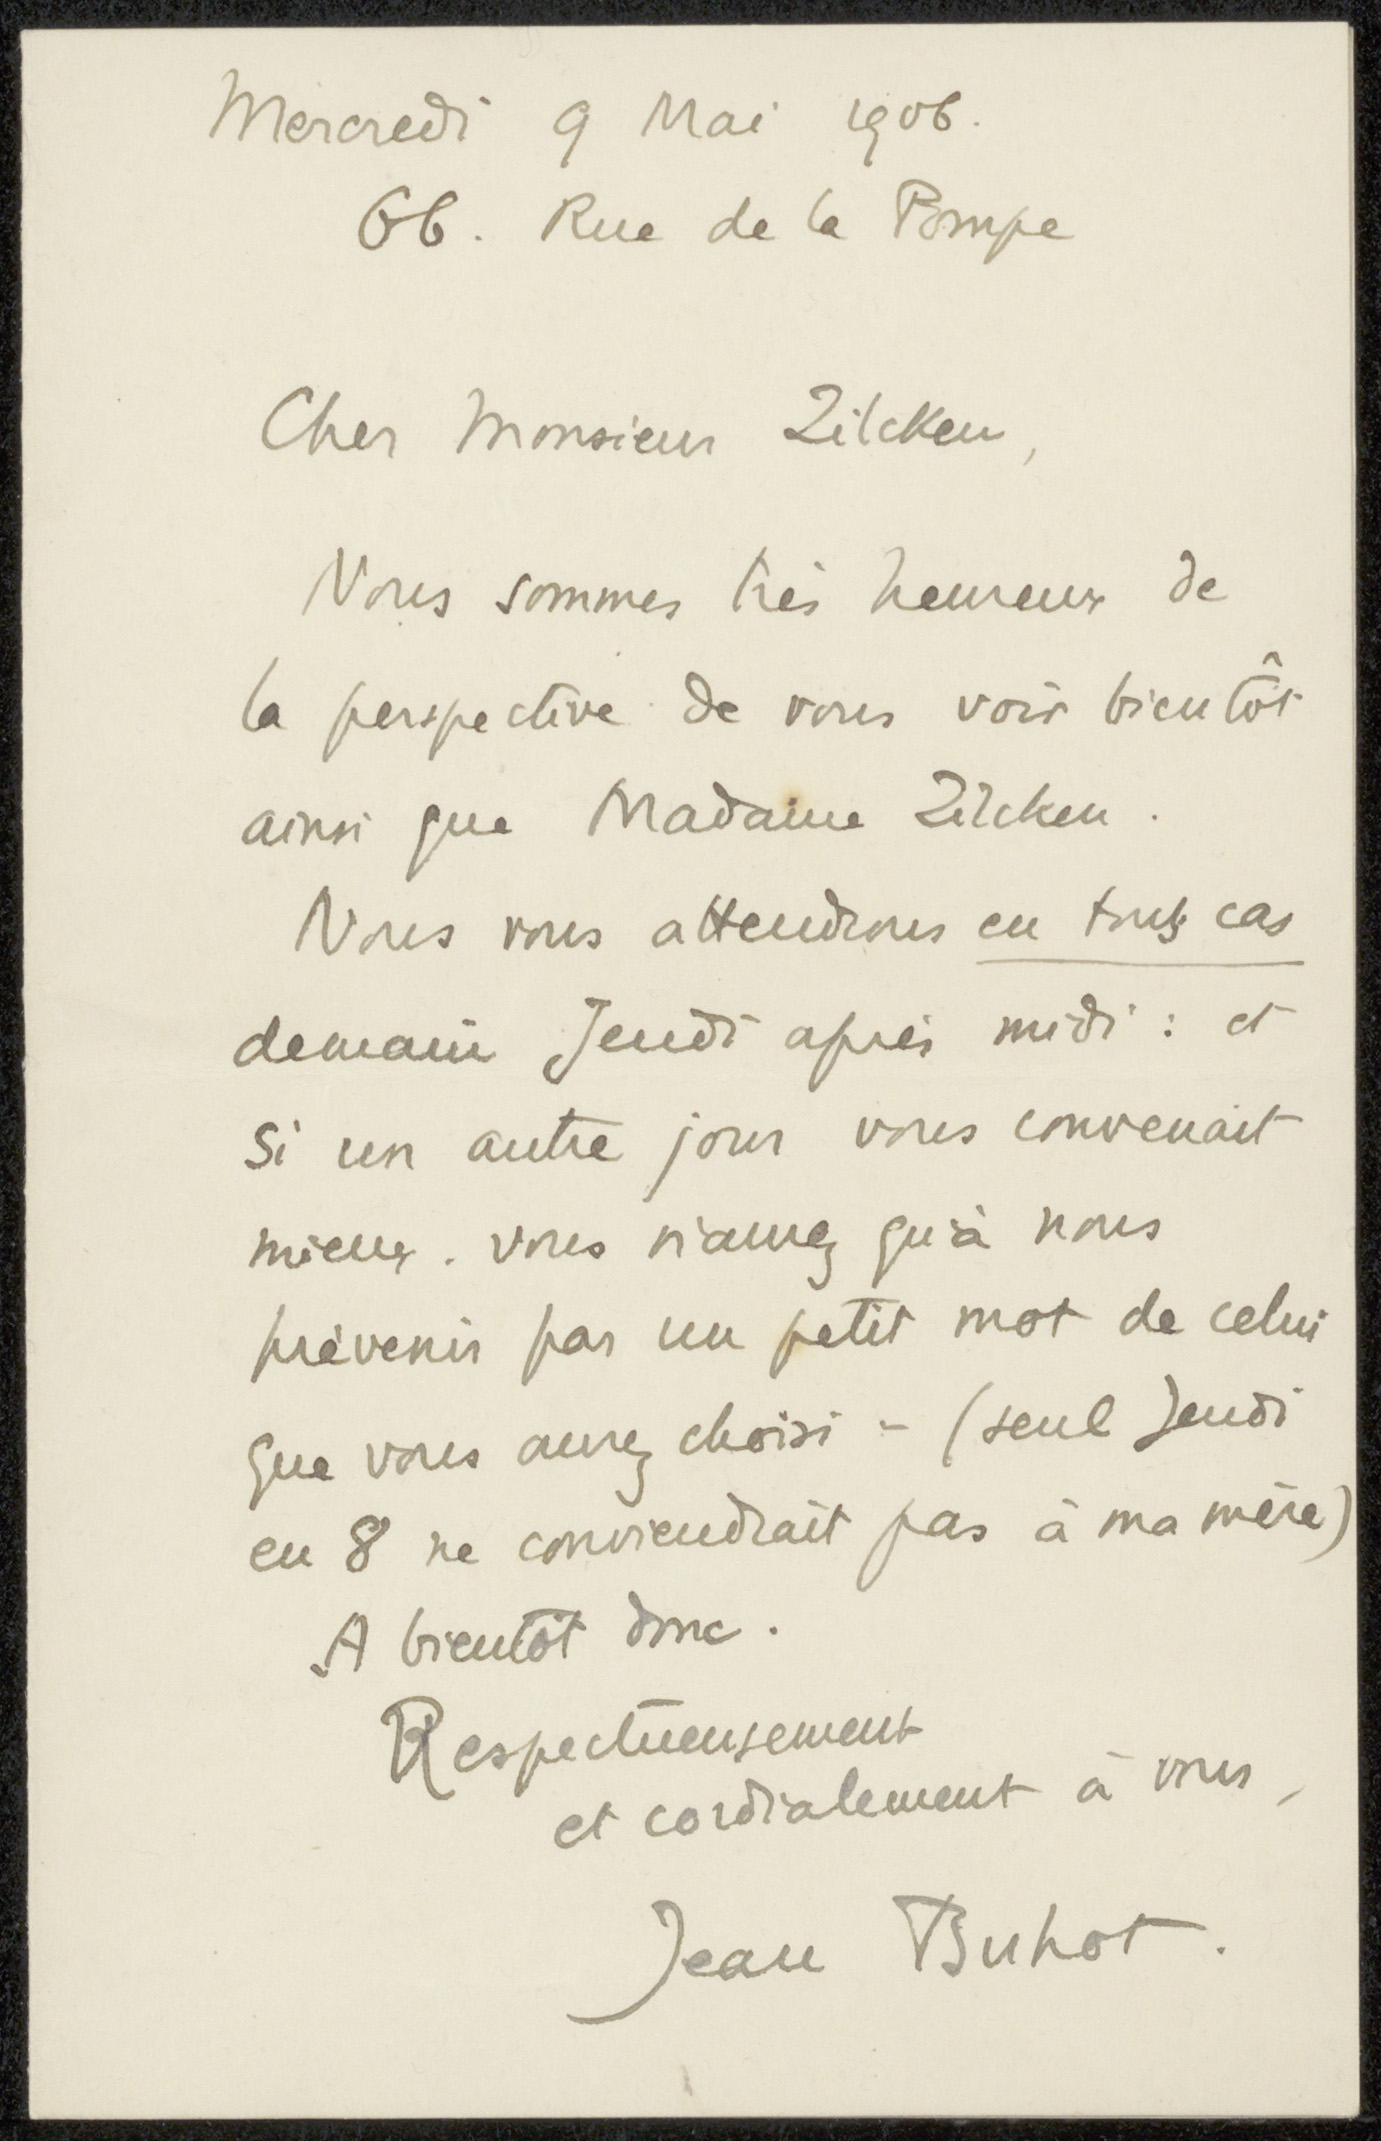 Mercredi 9 Mai 1906.
66. Rue de la Pompe
Cher Monsieur Zilcken,
Nous sommes très heureux de
la perspective de vous voir bientôt
ainsi que Madame Zilcken.
Nous vous attendrons en tous cas
demain Jeudi après midi : et
si un autre jour vous convenait
mieux. vous n'aurez qu'à nous
prévenir par un petit mot de celui
que vous aurez choisi - (seul Jeudi
en 8 ne conviendrait pas à ma mère)
A bientôt donc.
Respectueusement
et cordialement à vous,
Jean Buhot.